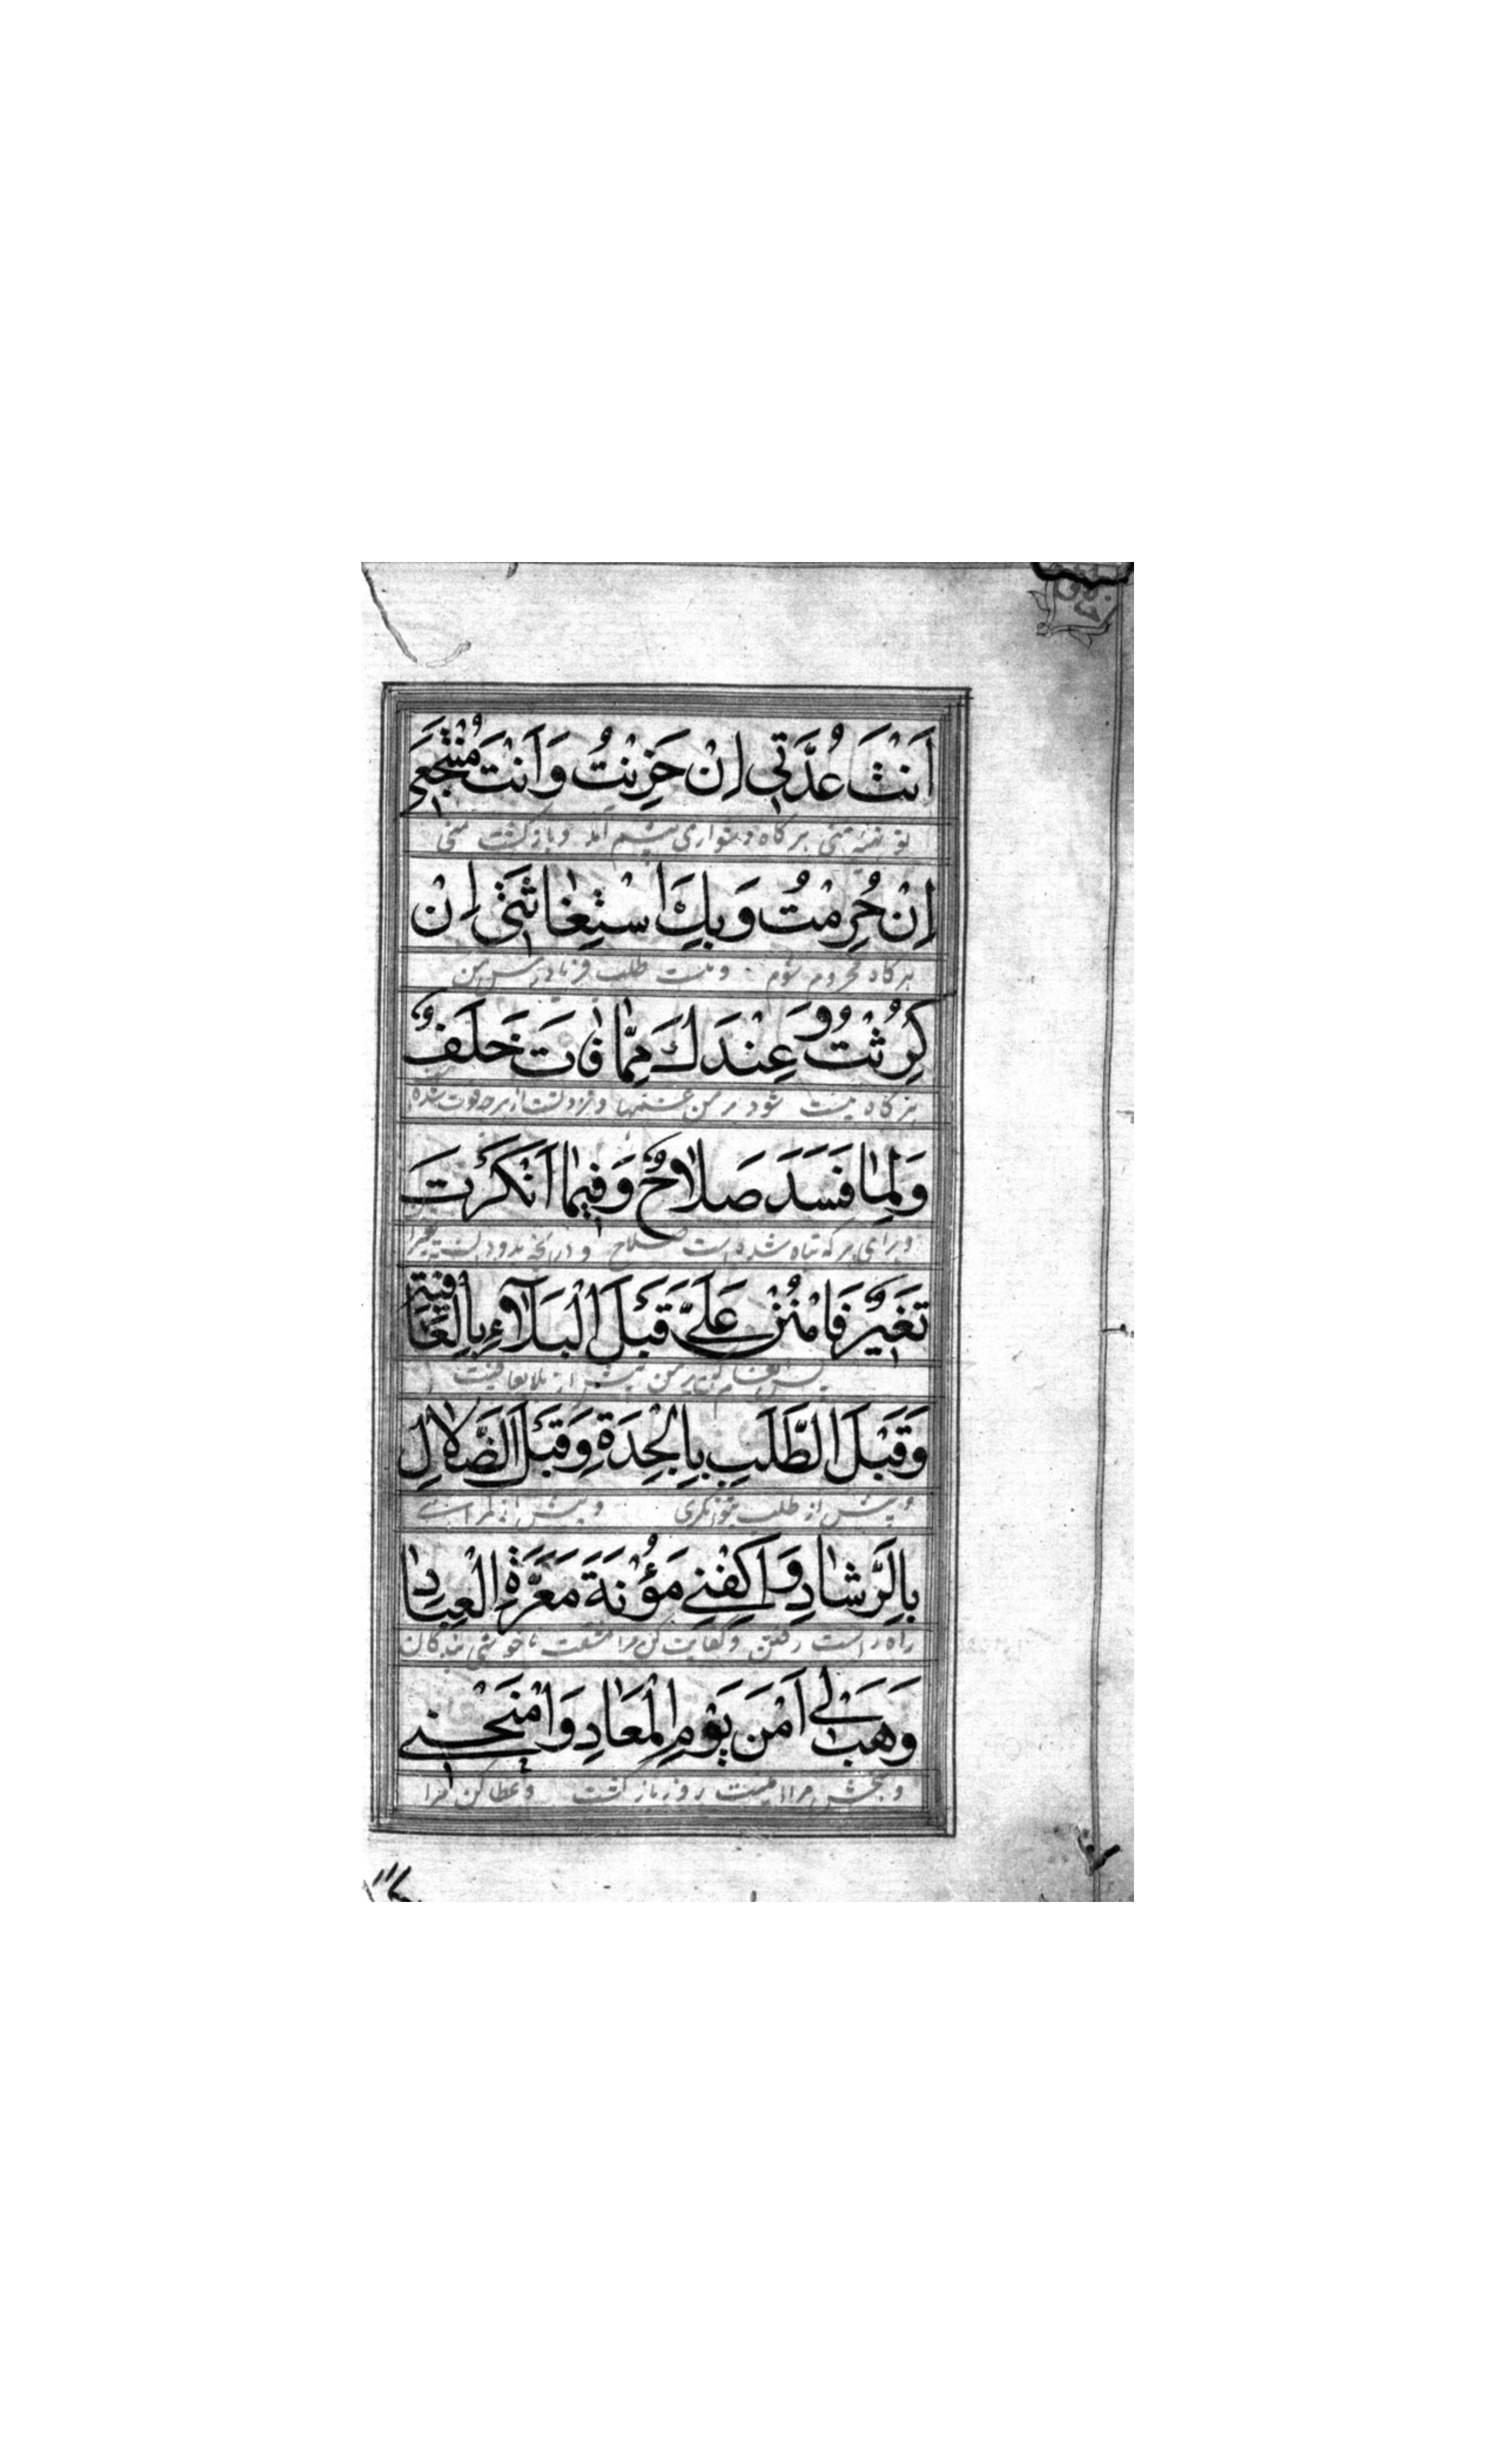 اَنْتَ عُدَّتِي اِنْ حَزِنْتُ وَاَنْتَ مُنْتَجَعِي
هرگاه دشواری پیشم آمد و بازگشت منی
اِنْ حُرِمْتُ وَبِكَ اسْتِغَاثَتِي اِنْ
هرگاه محروم شوم و بتست طلب فریاد رس من
كَرِثْتُ وَعِنْدَكَ مِمَّا فَاتَ خَلَفٌ
هرگاه شود بر من غمها و نزد تست از هرچه فوت شده
وَلِمَا فَسَدَ صَلَاحٌ وَفِيمَا اَنْكَرْتَ
و برای هر که تباه شده است صلاح و در آنچه بد تغییر
تَغْيِيرٌ فَامْنُنْ عَلَيَّ قَبْلَ الْبَلَاۤءِ بِالْعَافِيَةِ
پس انعام کن بر من پیش از بلا بعافیت
وَقَبْلَ الطَّلَبِ بِالْجِدَةِ وَقَبْلَ الضَّلَالِ
و پیش از طلب بتوانگری و پیش از گمراهی
بِالرَّشَادِ وَاكْفِنِي مَؤُنَةَ مَعَرَّةِ الْعِبَادِ
راه راست رفتن و کفایت کن مرا مشقت ناخوشی بندگان
وَهَبْ لِي اَمْنَ يَوْمِ الْمَعَادِ وَامْنَحْنِي
و ببخش مرا ایمنیت روز بازگشت و عطا کن مرا